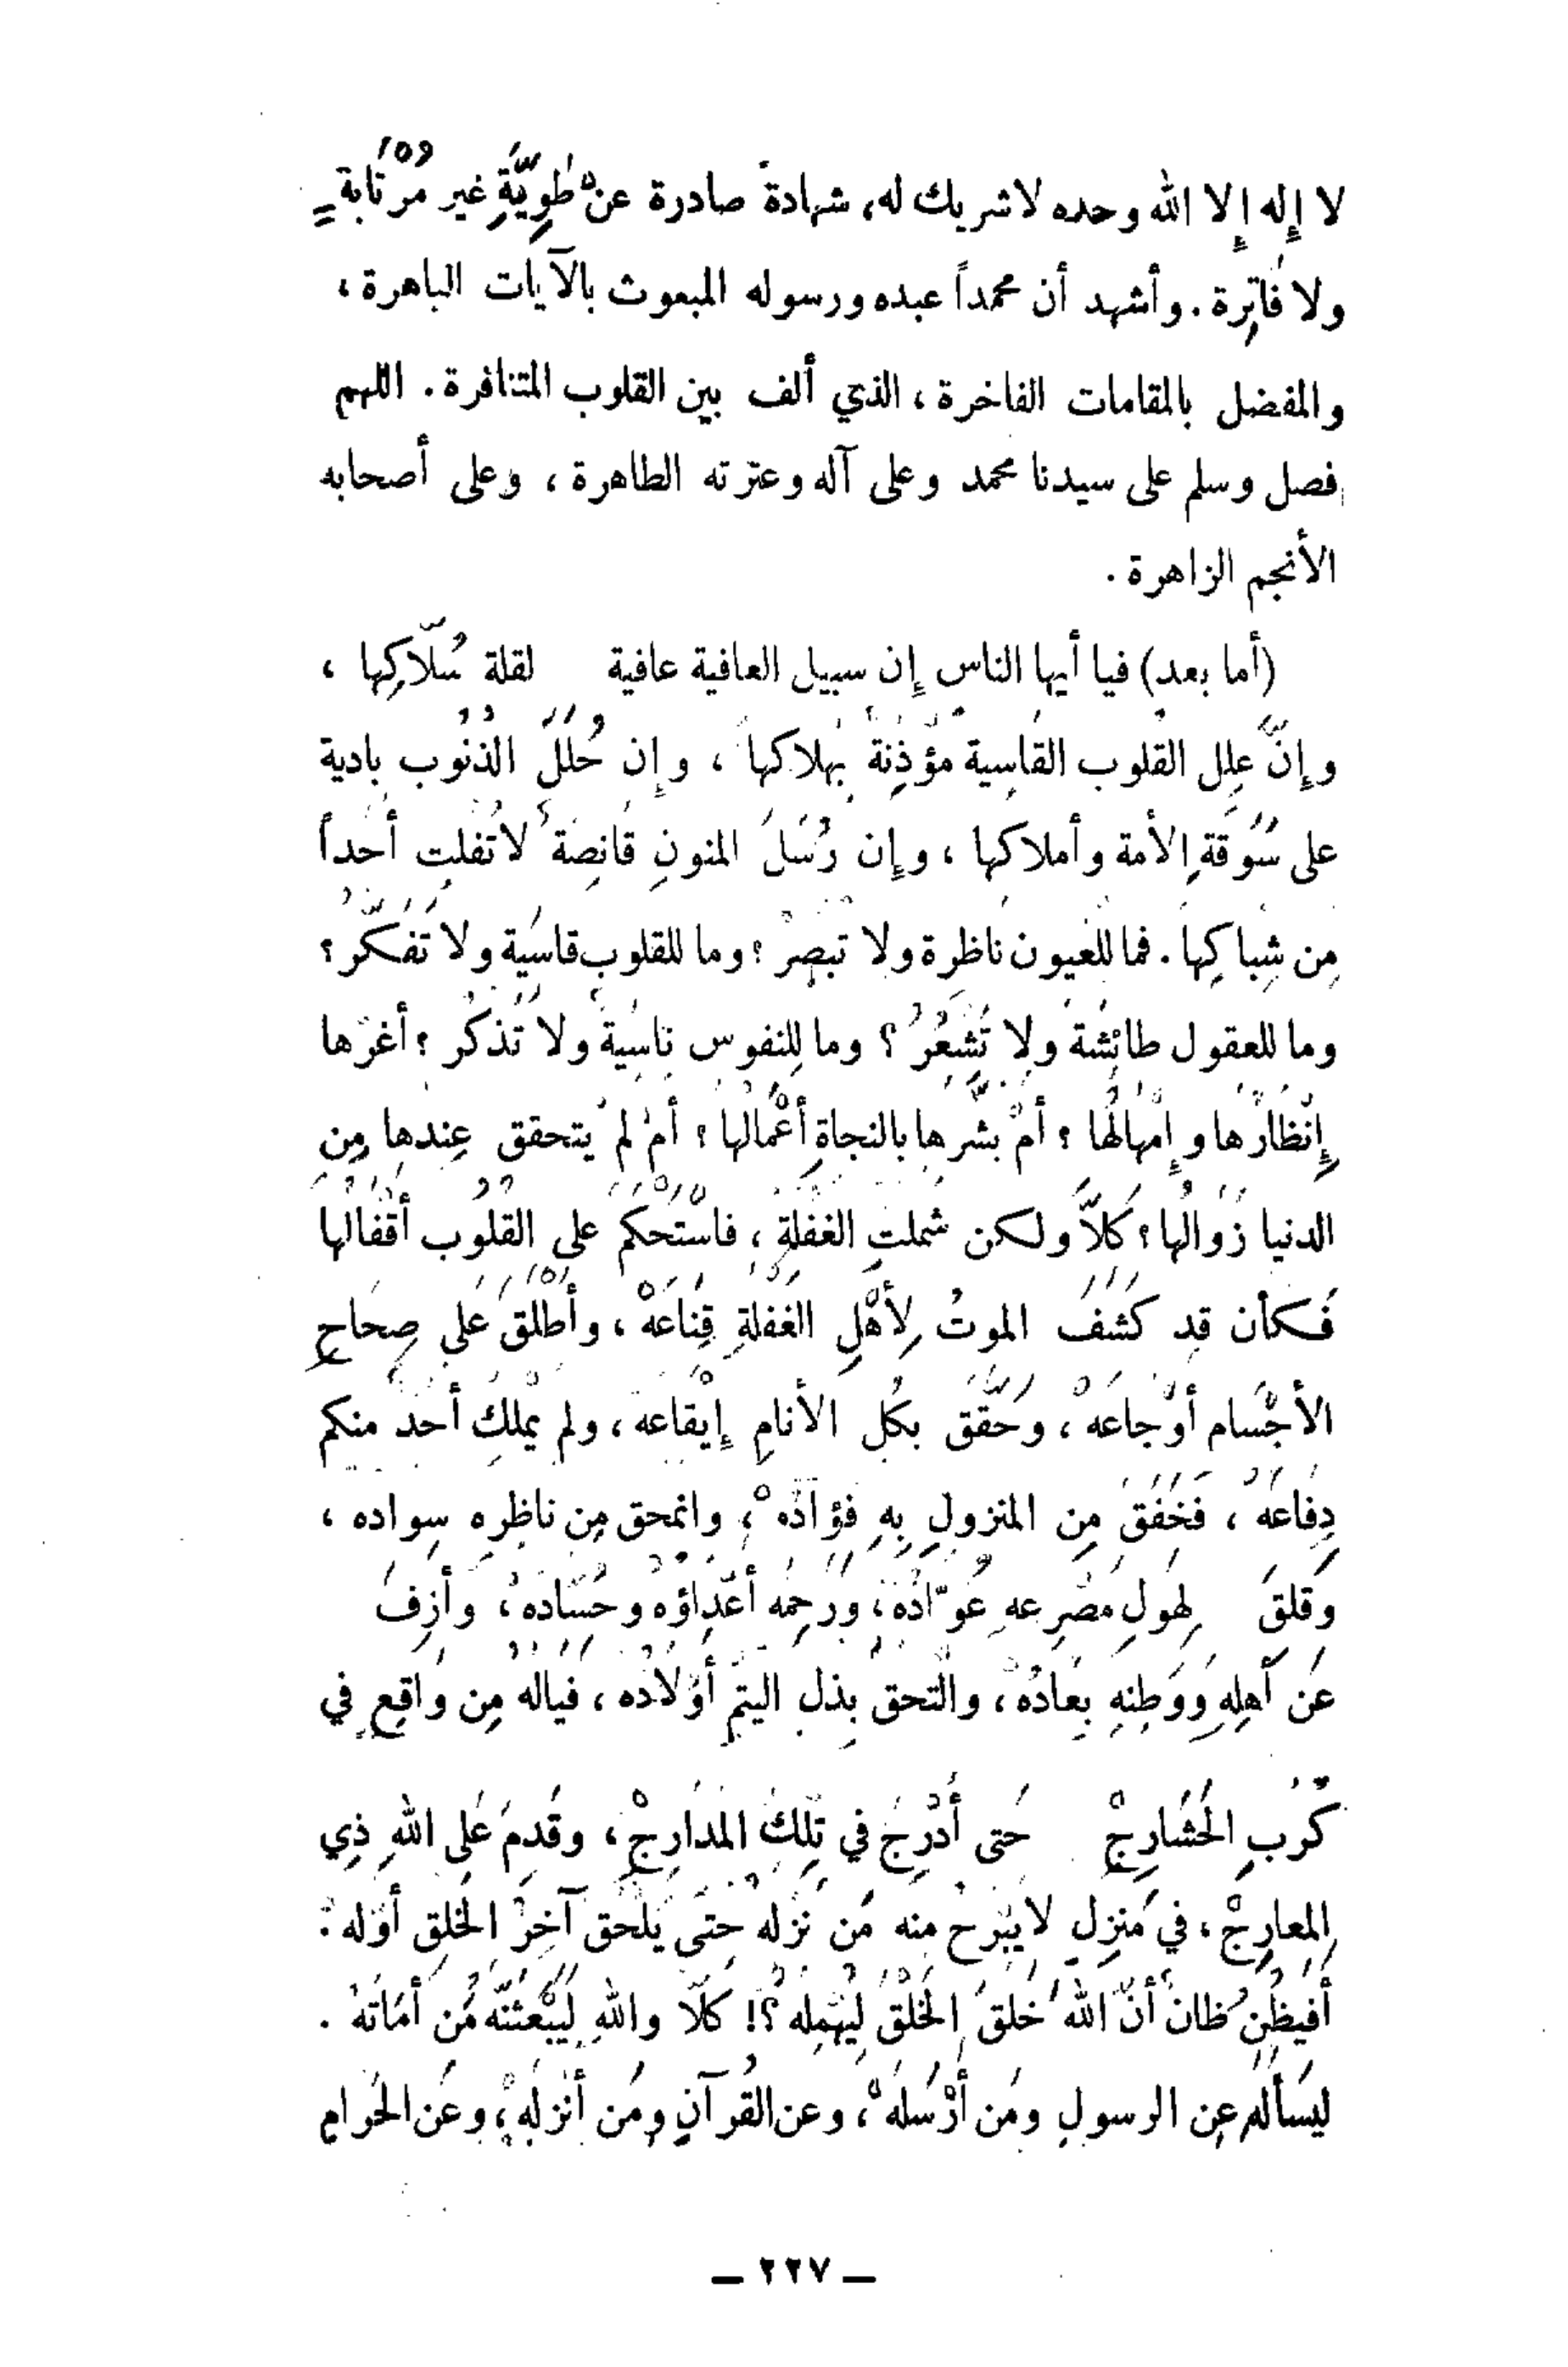 لا إِله إِلا الله وحده لاشريك له، شهادة صادرة عنْ طَوِيَّةٍ غير مُرْتَابة
ولا فَاتِرة. وأشهد أن محمداً عبده ورسوله المبعوث بالآيات الباهرة،
والمفضل بالمقامات الفاخرة، الذي ألف بين القلوب المتنافرة. اللهم
فصل وسلم على سيدنا محمد وعلى آله وعترته الطاهرة، وعلى أصحابه
الأنجم الزاهرة.
(أما بعد) فيا أيها الناس إن سبيل العافية عافية لقلة سُلّاكِها،
وإِنَّ عِلل القُلوب القَاسِية مُؤْذِنَةٌ بِهَلاكها، وإن حُلَلَ الذُنُوب بادية
على سُوَقَةِ الأمة وأملاكها، وإِن رُسَلَ المنونِ قَانِصَةٌ لاتُفلِت أحَداً
مِن شِباكِها. فما للعُيون نَاظِرة ولا تبصِرْ؟ وما للقلوب قاسِيَة ولا تَفَكَّرُ؟
وما للعقول طائِشَة ولا تَشْعُرُ؟ وما لِلنفوس نَاسِيَة ولا تَذكُر؟ أغَرّها
إِنْظَارُها وإِمْهالُها؟ أمْ بَشَّرها بالنجاةِ أعْمَالُها؟ أمْ لمْ يَتحقق عِندها مِن
الدنيا زَوالُها؟ كَلاَّ ولكن شَملتِ الغَفْلةِ، فاسْتَحْكَمَ على القُلُوب أقْفَالُها
فَكأن قد كَشَفَ الموتُ لِأَهْلِ الغَفْلةِ قِنَاعَهْ، وأطْلَقَ عَلى صِحَاحِ
الأجْسَام أوْجَاعَهْ، وحَقَّقَ بكُل الأنامِ إِيْقَاعَه، ولم يَمْلِكْ أحَدٌ منكم
دِفَاعَهُ، فَخَفَقَ مِن المنزولِ بِهِ فؤادُه، وانمحق مِن ناظِرِه سِواده،
وَقَلِقَ لِهَولِ مَصْرعِهِ عُوّادُهُ، وَرَحِمَه أعْدِاؤه وحُسّادهُ، وأزِفَ
عَن أهلِهِ وَوَطِنِهِ بِعَادُهُ، والْتحقَ بِذلِ اليتم أوْلادُه، فَياله مِن وَاقِعٍ في
كُرَبِ الحَشَارِجْ حَتى أدْرِجَ في تِلكَ المدَارِجْ، وقَدِمَ عَلى اللهِ ذِي
المعارِجْ، في مَنزِلٍ لايَبْرح منه مَن نَزَلَه حتى يَلْحَق آخِرُ الخَلقِ أوّله.
أفَيَظُن ظان أنّ اللهَ خَلقَ الخَلْقَ لِيُهْمِلَه؟! كَلّا واللهِ لَيَبْعَثَنَّه مَن أمَاتَهُ.
ليَسْأله عن الرسولِ ومَن أرْسَلَهْ، وعن القُرآنِ ومَن أنْزلَه، وعَن الحَرامِ
— ٢٢٧ —